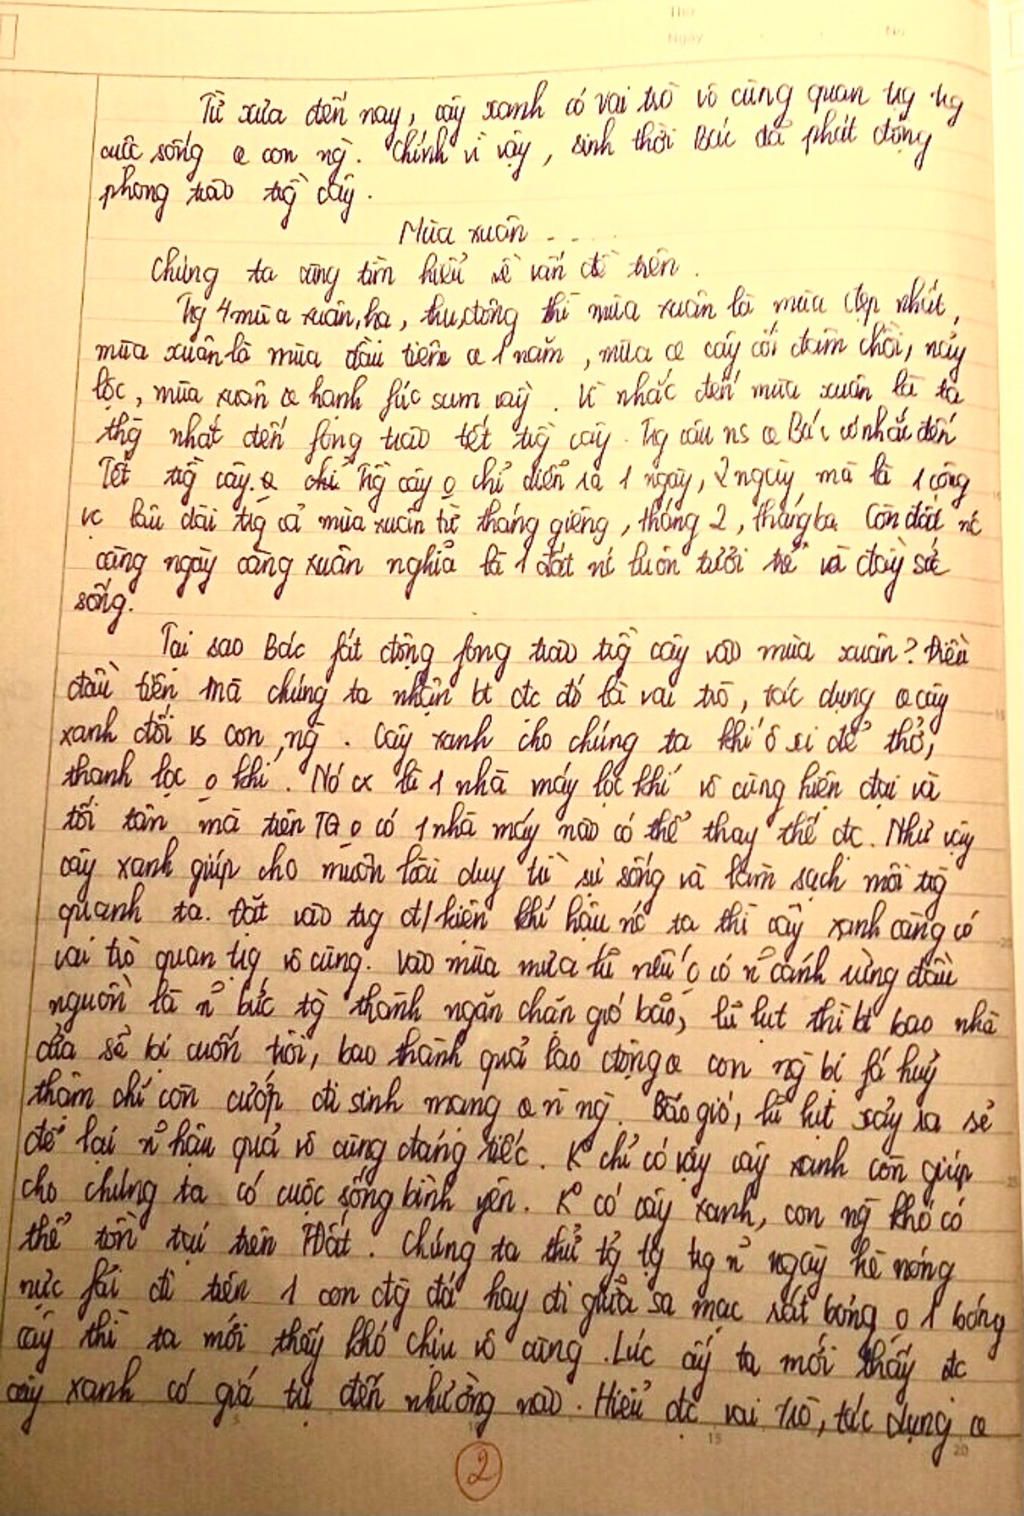 Từ xưa đến nay, cây xanh có vai trò vô cùng quan tṛg tṛg
cuộc sống ꝙ con ng̀. Chính vì vậy, sinh thời Bác đã phát động
phong trào tr̀g cây.
Mùa xuân ...
Chúng ta cùng tìm hiểu về vấn đề trên.
Trg 4 mùa xuân, hạ, thu, đông thì mùa xuân là mùa đẹp nhất,
mùa xuân là mùa đầu tiên ꝙ 1 năm, mùa ꝙ cây cối đâm chồi, nảy
lộc, mùa xuân ꝙ hạnh fúc sum vầy. Vì nhắc đến mùa xuân là ta
nhất đến fong trào tết tr̀g cây. Trg câu ns ꝙ Bác có nhắc đến
Tết tr̀g cây. Tr̀g cây o chỉ diễn ra 1 ngày, 2 ngày mà là 1 công
vc lâu dài trg cả mùa xuân từ tháng giêng, tháng 2, tháng ba. Còn đất nc
càng ngày càng xuân nghĩa là 1 đất nc luôn tười trẻ và đầy sức
sống.
Tại sao Bác fát động fong trào tr̀g cây vào mùa xuân? Điều
đầu tiên mà chúng ta nhận bt đc đó là vai trò, tác dụng ꝙ cây
xanh đối vs con ng̀. Cây xanh cho chúng ta khí ô xi để thở,
thanh lọc o khí. Nó cx là 1 nhà máy lọc khí vô cùng hiện đại và
tối tân mà trên TG o có 1 nhà máy nào có thể thay thế đc. Như vậy
cây xanh giúp cho muôn loài duy trì sự sống và làm sạch môi trg
quanh ta. Đặt vào trg đ/kiện khí hậu nc ta thì cây xanh càng có
vai trò quan tṛg vô cùng. Vào mùa mưa lũ nếu o có n~ cánh rừng đầu
nguồn là n~ bức tg̀ thành ngăn chặn gió bão, lũ lụt thì bt bao nhà
cửa sẽ bị cuốn trôi, bao thành quả lao động ꝙ con ng̀ bị fá huỷ
thậm chí còn cướp đi sinh mạng ꝙ n ng̀. Bão gió, lũ lụt xảy ra sẽ
để lại n~ hậu quả vô cùng đáng tiếc. Ko chỉ có vậy cây xanh còn giúp
cho chúng ta có cuộc sống bình yên. Ko có cây xanh, con ng̀ khó có
thể tồn tại trên TĐất. Chúng ta thử tg̉ tg trg n~ ngày hè nóng
nực fải đi trên 1 con đg̀ đá hay đi giữa sa mạc sát bỏng o 1 bóng
cây thì ta mới thấy khó chịu vô cùng. Lúc ấy ta mới thấy đc
cây xanh có giá trị đến nhường nào. Hiểu đc vai trò, tác dụng ꝙ
2